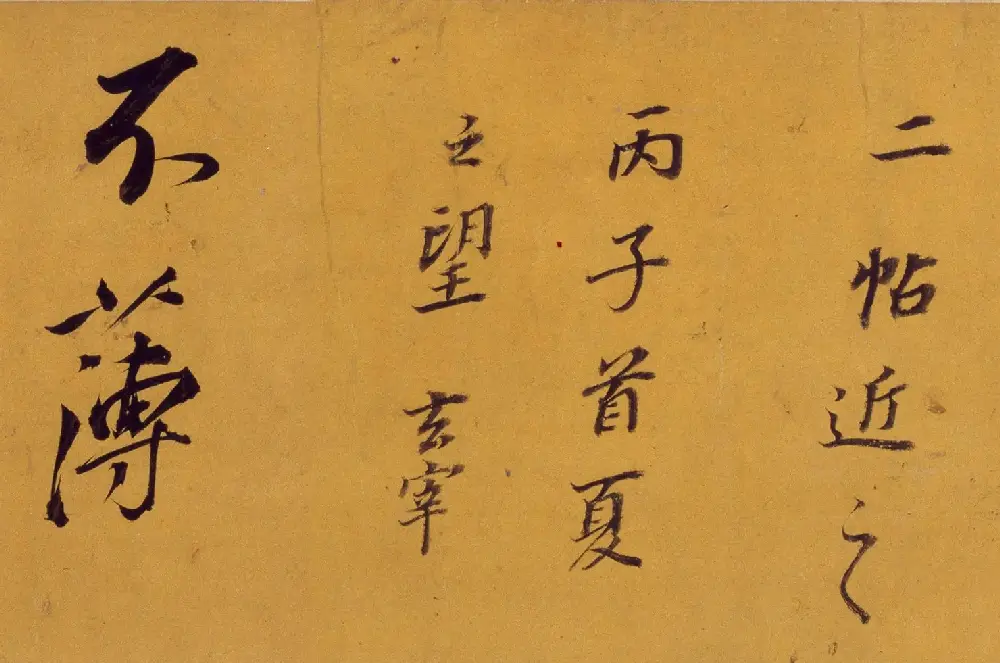 二帖近之
丙子首夏
之望 玄宰
不薄